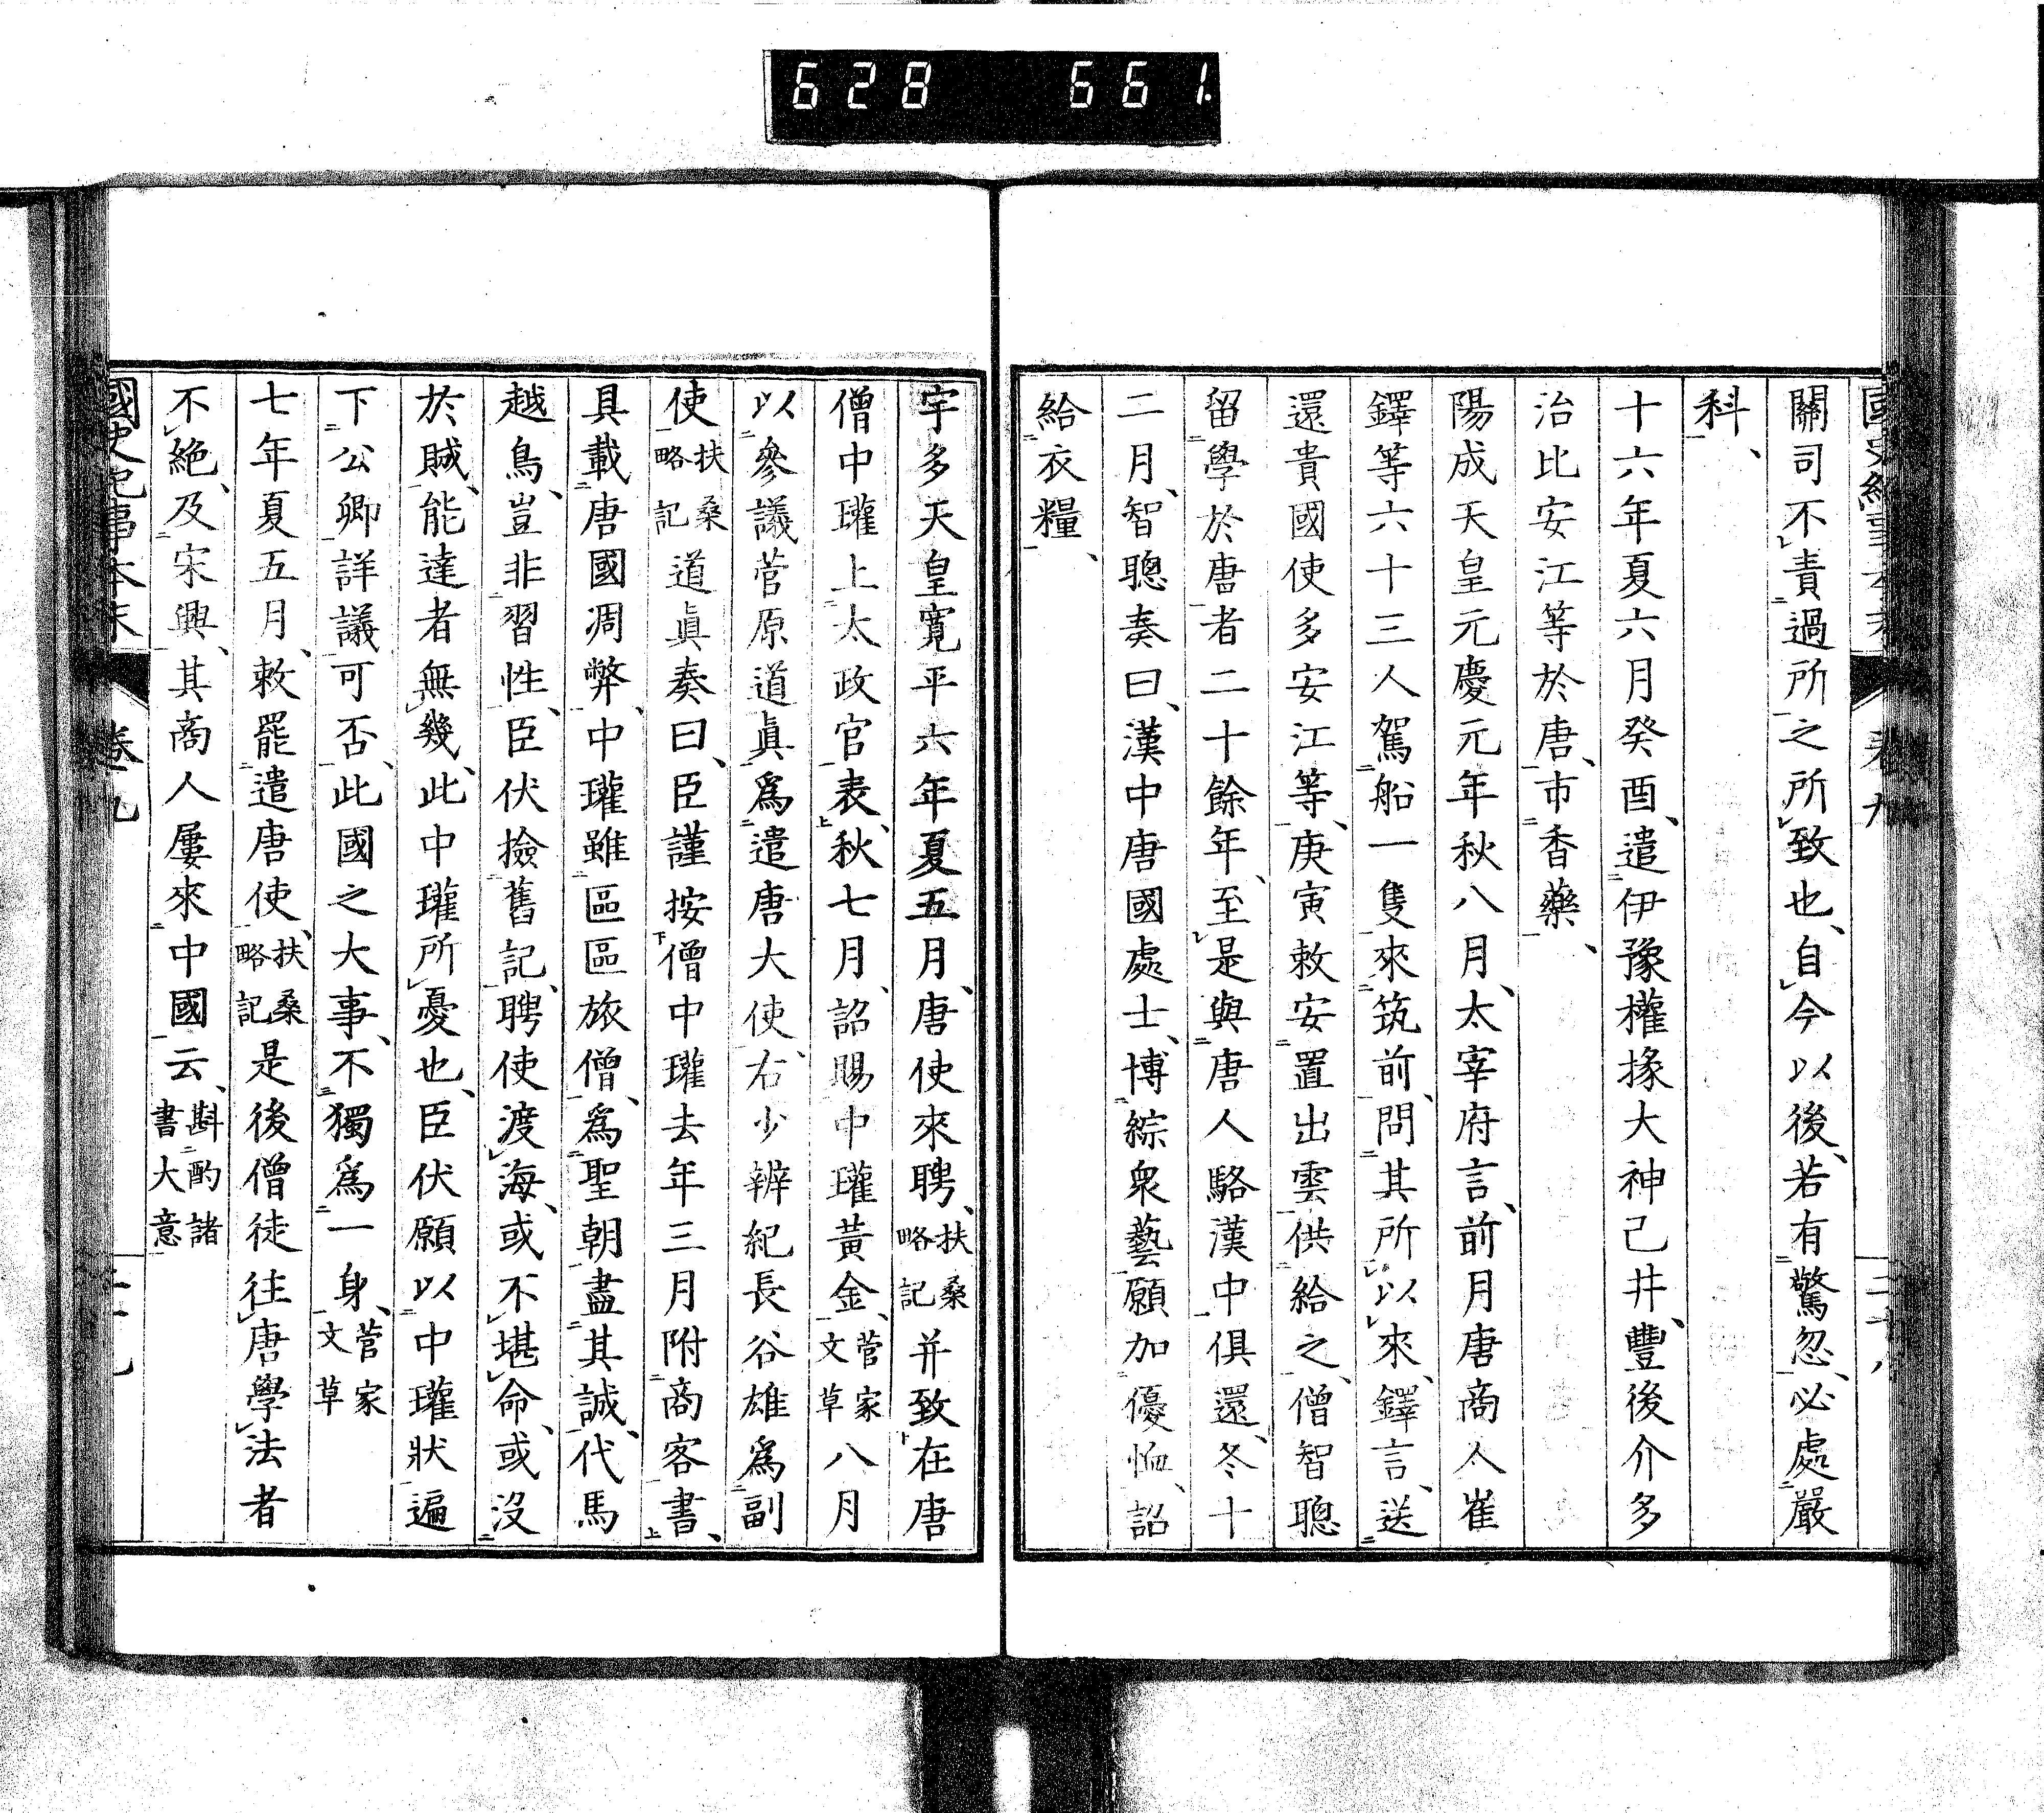 628 661.
國史紀事本末 卷九 二十八
關司不責過所之所致也、自今以後、若有驚忽、必處嚴
科、
十六年夏六月癸酉、遣伊豫權掾大神己井、豐後介多
治比安江等於唐、市香藥、
陽成天皇元慶元年秋八月、太宰府言、前月唐商人崔
鐸等六十三人駕船一隻來筑前、問其所以來、鐸言、送
還貴國使多安江等、庚寅敕安置出雲供給之、僧智聰
留學於唐者二十餘年、至是與唐人駱漢中俱還、冬十
二月、智聰奏曰、漢中唐國處士、博綜衆藝、願加優恤、詔
給衣糧、
宇多天皇寬平六年夏五月、唐使來聘、扶桑略記并致在唐
僧中瓘上太政官表、秋七月、詔賜中瓘黃金、菅家文草八月
以參議菅原道眞爲遣唐大使、右少辨紀長谷雄爲副
使扶桑略記道眞奏曰、臣謹按僧中瓘去年三月附商客書、
具載唐國凋弊、中瓘雖區區旅僧、爲聖朝盡其誠、代馬
越鳥、豈非習性、臣伏撿舊記、聘使渡海、或不堪命、或沒
於賊、能達者無幾、此中瓘所憂也、臣伏願以中瓘狀遍
下公卿詳議可否、此國之大事、不獨爲一身、菅家文草
七年夏五月、敕罷遣唐使、扶桑略記是後僧徒往唐學法者
不絕、及宋興、其商人屢來中國云、斟酌諸書大意
國史紀事本末 卷九